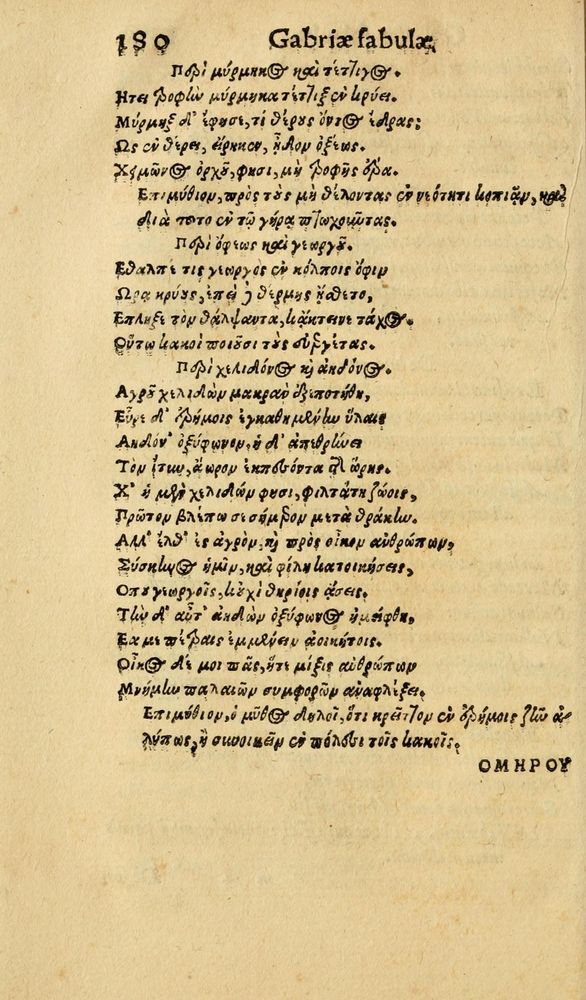 180 Gabriæ fabulæ,
Περὶ μύρμηκος καὶ τέτζιγος.
Ητει τροφὴν μύρμηκα τέτζιξ ἐν κρύει.
Μύρμηξ δ' ἔφησε, τί θέρους ὄντος ἔδρας;
Ως ἐν θέρει, εἴρηκεν, ᾖδον ὀξέως.
Χειμῶνος ὀρχοῦ, φησι, μὴ τροφῆς ὅρα.
Επιμύθιον, πρὸς τοὺς μὴ θέλοντας ἐν νεότητι κοπιᾶν, καὶ
διὰ τοῦτο ἐν τῷ γήρᾳ πτωχοιῦτας.
Περὶ ὄφεως καὶ γεωργοῦ.
Εθαλπέ τις γεωργὸς ἐν κόλποις ὄφιν
Ωρα κρύους, ἐπεὶ δὲ θέρμης ᾔσθετο,
Επληξε τὸν θάλψαντα, κἄκτεινε τάχος.
Οὕτω κακοὶ ποιοῦσι τοὺς εὐεργέτας.
Περὶ χελιδόνος καὶ ἀηδόνος.
Αγροῦ χελιδὼν μακρὰν ἐξεποτήθη,
Εὗρε δ' ἐρήμοις ἐγκαθημένην ὕλαις
Αηδόν' ὀξύφωνον, ἡ δ' ἀπεθρήνει
Τὸν ἴτυν, ἄωρον ἐκπεσόντα τῆς ὥρης.
Χ' ἡ μὲν χελιδών φησι, φιλτάτη ζώοις,
Πρῶτον βλέπω σε σήμερον μετὰ θράκην.
Αλλ' ἔλθ' ἐς ἀγρὸν, καὶ πρὸς οἶκον ἀνθρώπων,
Σύσκηνος ἡμῖν, καὶ φίλη κατοικήσεις,
Οπου γεωργοῖς, κ' οὐχὶ θηρίοις ᾄσεις.
Τὴν δ' αὖτ' ἀηδὼν ὀξύφωνος ἠμείφθη,
Εα με πέτραις ἐμμένειν ἀοικήτοις.
Οἶκος δέ μοι πᾶς, ἥτε μίξις ἀνθρώπων
Μνήμην παλαιῶν συμφορῶν ἀναφλέξει.
Επιμύθιον, ὁ μῦθος δηλοῖ, ὅτι κρεῖτζον ἐν ἐρήμοις ζῆν ἀ-
λύπως, ἢ συνοικεῖν ἐν πόλεσι τοῖς κακοῖς.
ΟΜΗΡΟΥ